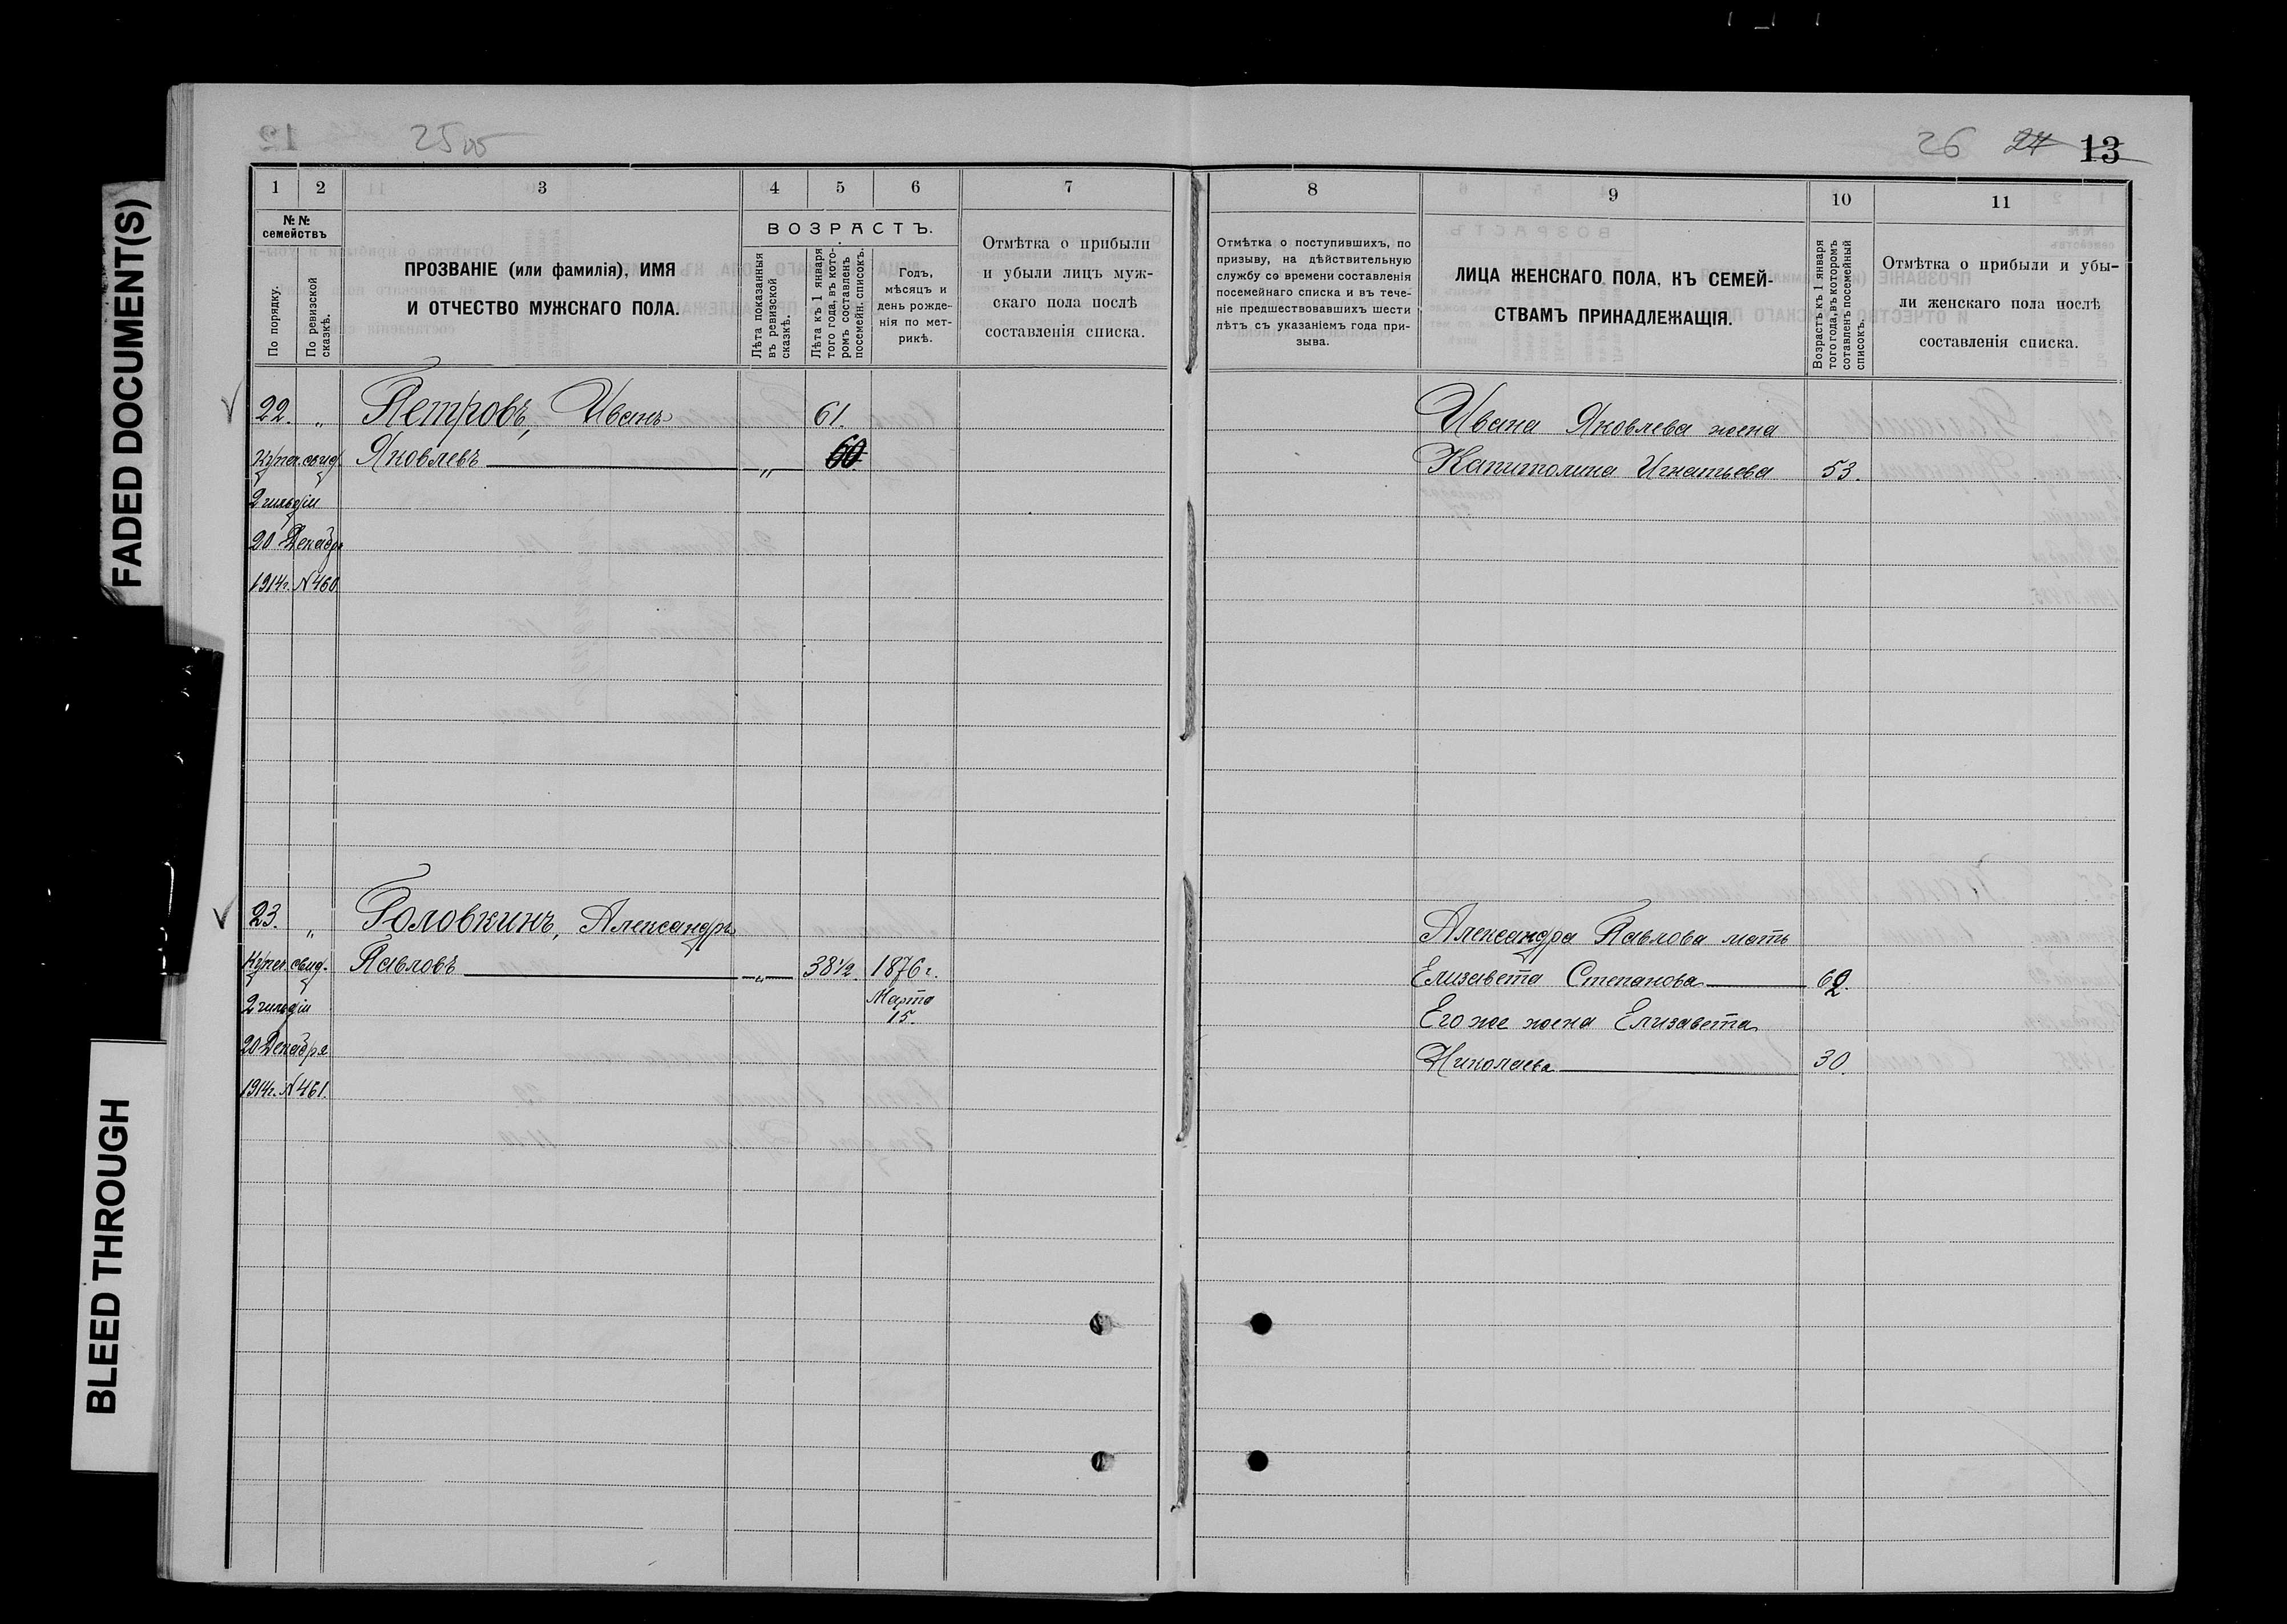 FADED DOCUMENT(S)
BLEED THROUGH
25об
26 24 13
1 2 3 4 5 6 7
№ № семействъ
По порядку.
По ревизской сказкѣ.
ПРОЗВАНІЕ (или фамилія), ИМЯ
И ОТЧЕСТВО МУЖСКАГО ПОЛА.
ВОЗРАСТЪ.
Лѣта показанныя въ ревизской сказкѣ.
Лѣта къ 1 января того года, въ кото-ромъ составленъ посемейн. списокъ.
Годъ,
мѣсяцъ и
день рожде-
нія по мет-
рикѣ.
Отмѣтка о прибыли
и убыли лицъ муж-
скаго пола послѣ
составленія списка.
22. „ Петровъ, Иванъ 61.
Купеч. свид. Яковлевъ „ 60
2 гильдіи
20 Декабря
1914г. N 460
23. „ Головкинъ, Александръ
Купеч. свид. Павловъ „ 38½. 1876 г.
2 гильдіи Марта
15.
20 Декабря
1914г. N 461.
8 9 10 11
Отмѣтка о поступившихъ, по
призыву, на дѣйствительную
службу со времени составленія
посемейнаго списка и въ тече-
ніе предшествовавшихъ шести
лѣтъ съ указаніемъ года при-
зыва.
ЛИЦА ЖЕНСКАГО ПОЛА, КЪ СЕМЕЙ-
СТВАМЪ ПРИНАДЛЕЖАЩІЯ.
Возрастъ къ 1 января
того года, въ которомъ
сотавленъ посемейный
списокъ.
Отмѣтка о прибыли и убы-
ли женскаго пола послѣ
составленія списка.
Ивана Яковлева жена
Капитолина Игнатьева 53.
Александра Павлова мать
Елизавета Степанова 62.
Его же жена Елизавета
Николаева 30.